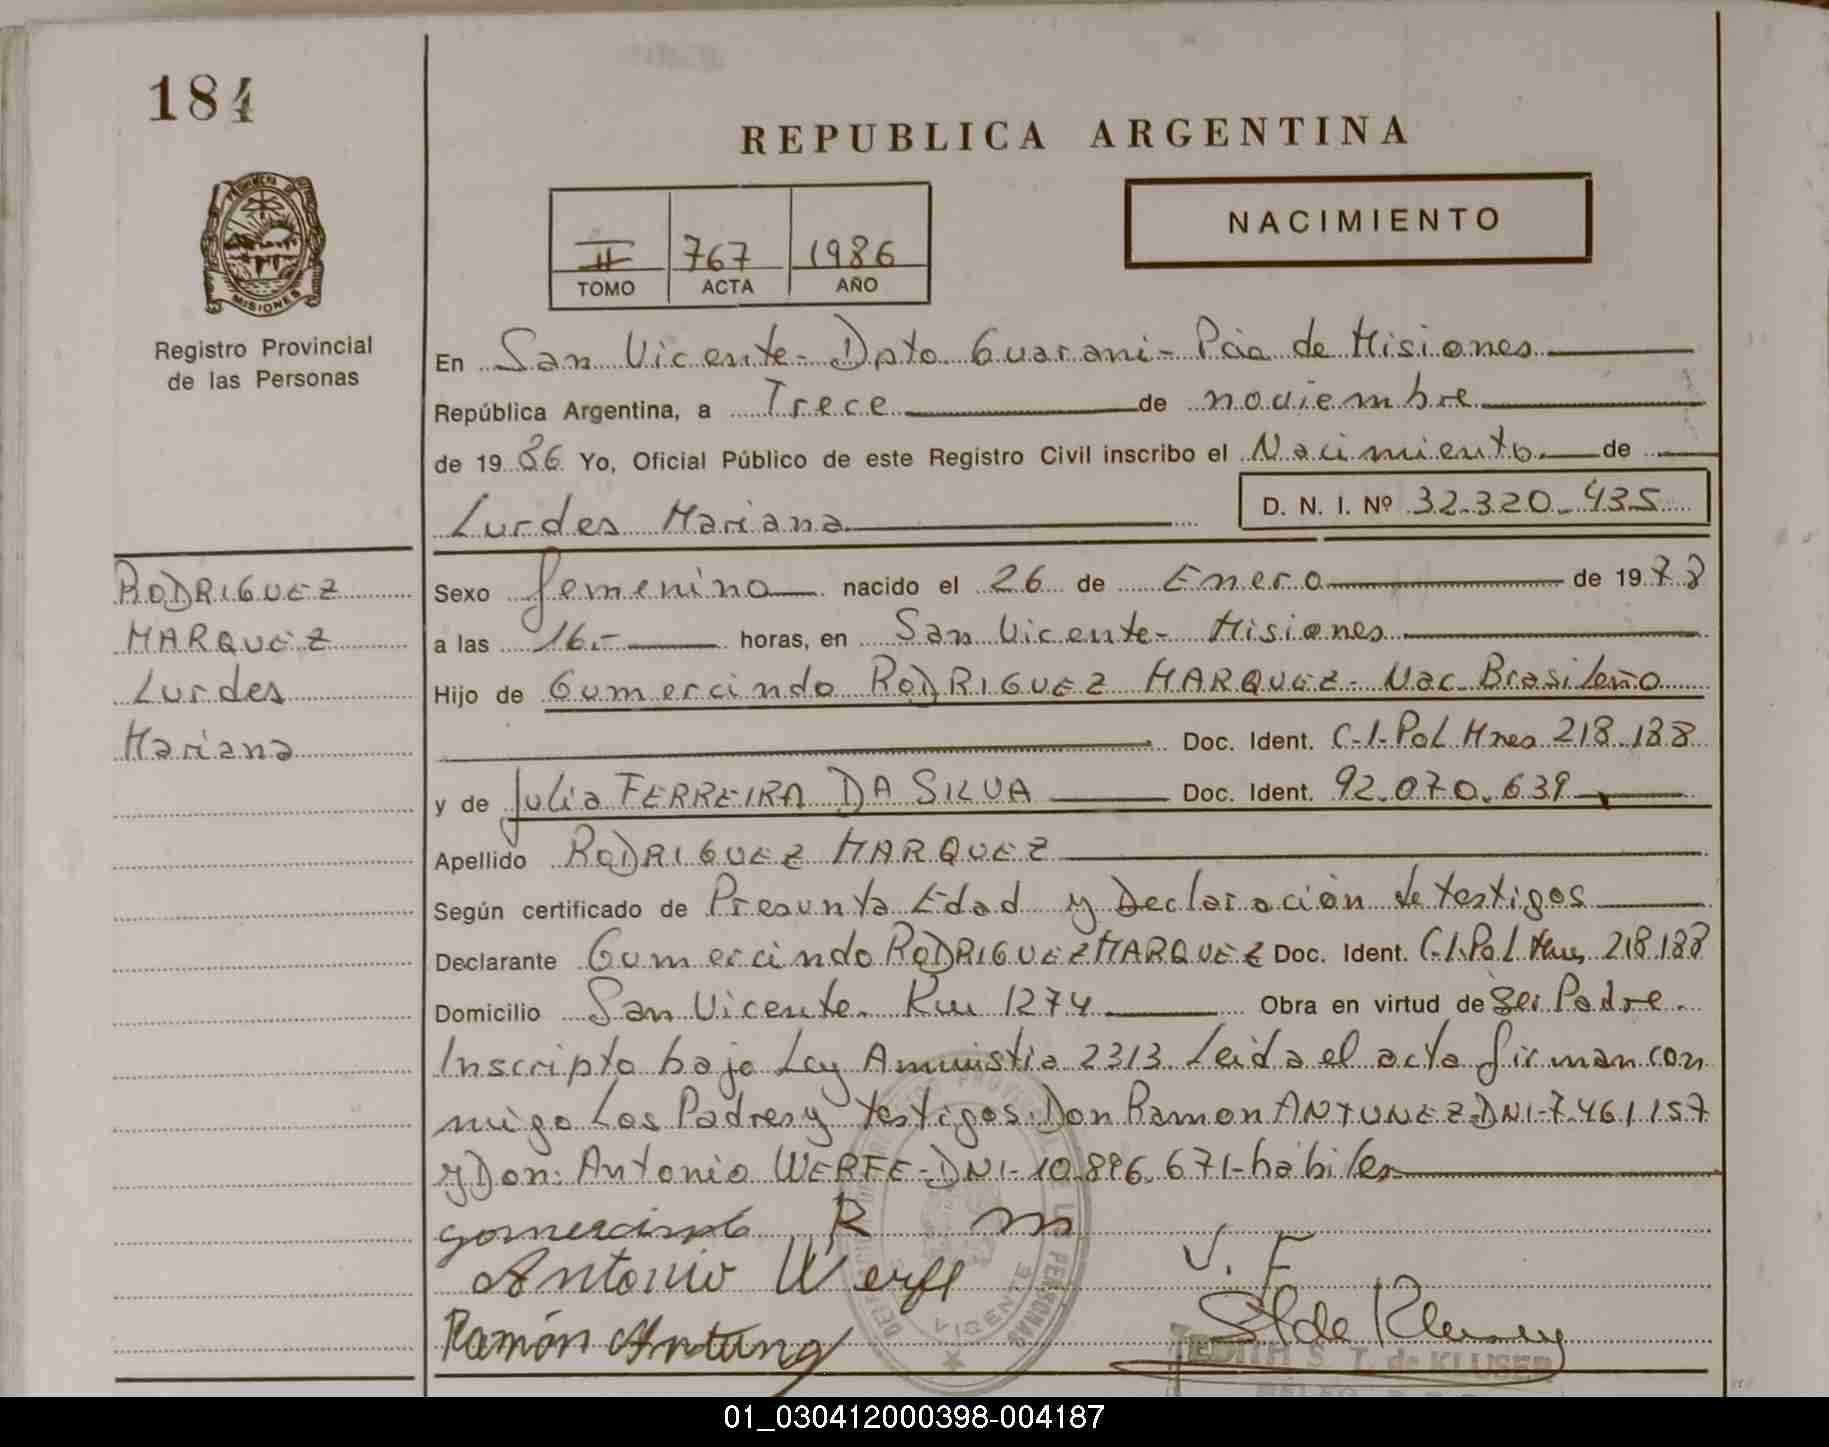 184
REPUBLICA ARGENTINA
NACIMIENTO
II 767 1986
TOMO ACTA AÑO
PROVINCIA DE
MISIONES
Registro Provincial
de las Personas
En San Vicente - Dpto Guarani - Pcia de Misiones
República Argentina, a Trece de noviembre
de 1986 Yo, Oficial Público de este Registro Civil inscribo el Nacimiento de
Lurdes Mariana
D. N. I. Nº 32.320.435
RODRIGUEZ
MARQUEZ
Lurdes
Mariana
Sexo femenino nacido el 26 de Enero de 1978
a las 16.- horas, en San Vicente - Misiones
Hijo de Gumercindo RODRIGUEZ MARQUEZ - Nac. Brasileño
Doc. Ident. C.I. Pol Mnes 218.188
y de Julia FERREIRA DA SILVA Doc. Ident. 92.070.639
Apellido RODRIGUEZ MARQUEZ
Según certificado de Presunta Edad y Declaración de testigos
Declarante Gumercindo RODRIGUEZ MARQUEZ Doc. Ident. C.I. Pol Mnes 218.188
Domicilio San Vicente. Km 1274 Obra en virtud de Ser Padre.
Inscripto bajo Ley Amnistia 2313. Leida el acta firman con
migo Los Padres y testigos: Don Ramon ANTUNEZ - DNI - 7.461.157
y Don: Antonio WERFE - DNI - 10.896.671 - habiles
gomercindo R m
V. F
Antonio Werfe
Ramón Antunez
VICENTE
EDITH S. T. de KLUSER
01_030412000398-004187